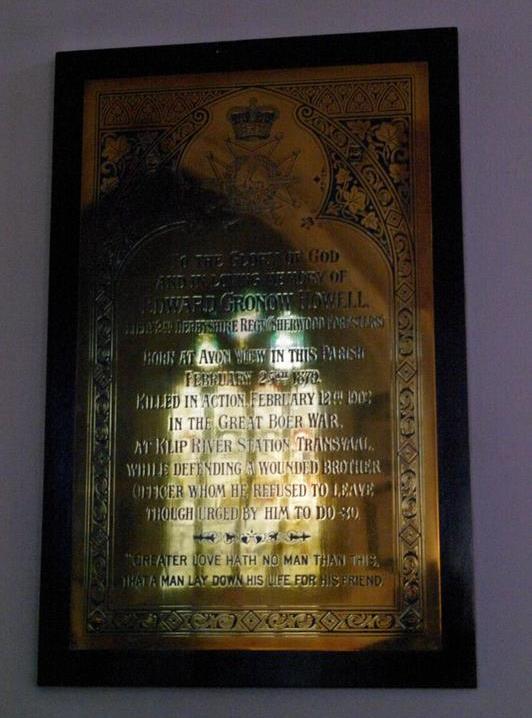 THE GLORY OF GOD
AND IN LOVING MEMORY OF
EDWARD GRONOW HOWELL.
DERBYSHIRE REGT (SHERWOOD FORESTERS)
BORN AT AVON VIEW IN THIS PARISH
FEBRUARY 25TH
KILLED IN ACTION, FEBRUARY 12TH 1902
IN THE GREAT BOER WAR,
AT KLIP RIVER STATION, TRANSVAAL,
WHILE DEFENDING A WOUNDED BROTHER
OFFICER WHOM HE REFUSED TO LEAVE
THOUGH URGED BY HIM TO DO SO.
"GREATER LOVE HATH NO MAN THAN THIS,
THAT A MAN LAY DOWN HIS LIFE FOR HIS FRIEND